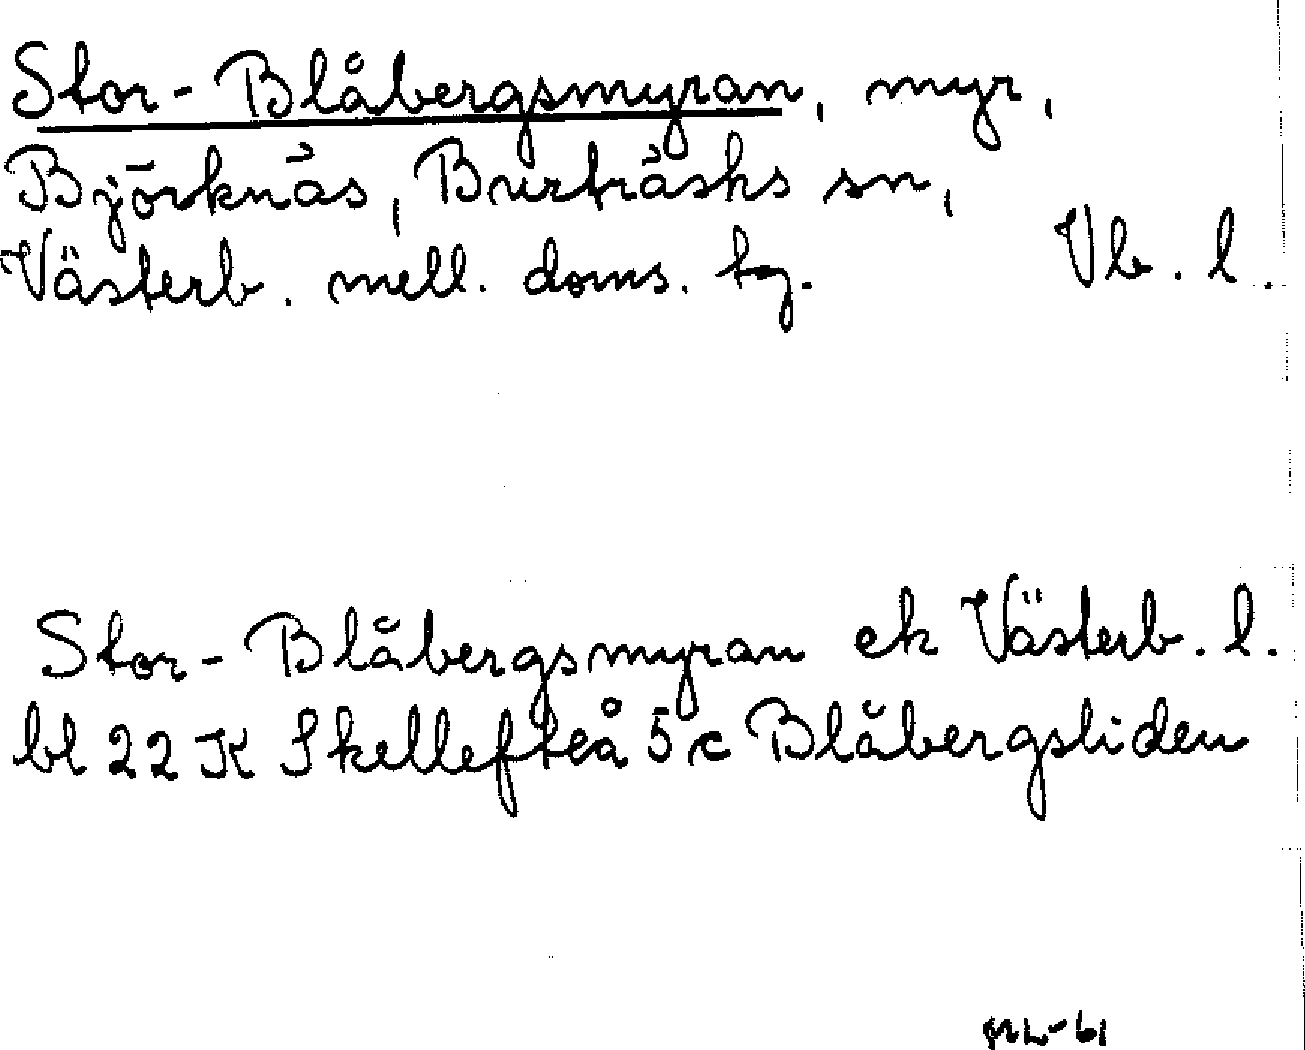 Stor-Blåbergsmyran, myr,
Björknäs, Burträsks sn,
Västerb. mell. doms. tg. Vb. l.
Stor-Blåbergsmyran ek Västerb. l.
bl 22 K Skellefteå 5 c Blåbergsliden